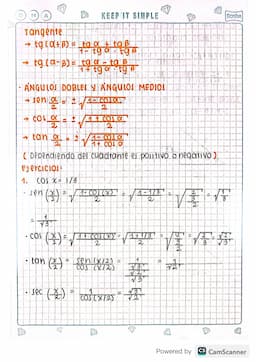 D M A KEEP IT SIMPLE Scribe
Tangente
→ tg (α+β) = tg α + tg β / 1 - tg α · tg β
→ tg (α-β) = tg α - tg β / 1 + tg α · tg β
· ÁNGULOS DOBLES Y ÁNGULOS MEDIOS
→ sen α/2 = ± √1-cos α / 2
→ cos α/2 = ± √1+cos α / 2
→ tan α/2 = ± √1-cos α / 1+cos α
( Dependiendo del cuadrante es positivo o negativo)
Ejercicios:
1. cos x = 1/3
· sen (x/2) = √1-cos(x) / 2 = √1-1/3 / 2 =
1/√3
· cos (x/2) = √1+cos(x) / 2 = √1+1/3 / 2 =
· tan (x/2) = sen(x/2) / cos(x/2) = = 1/√2
· sec (x/2) = 1 / cos(x/2) =
Powered by CS CamScanner